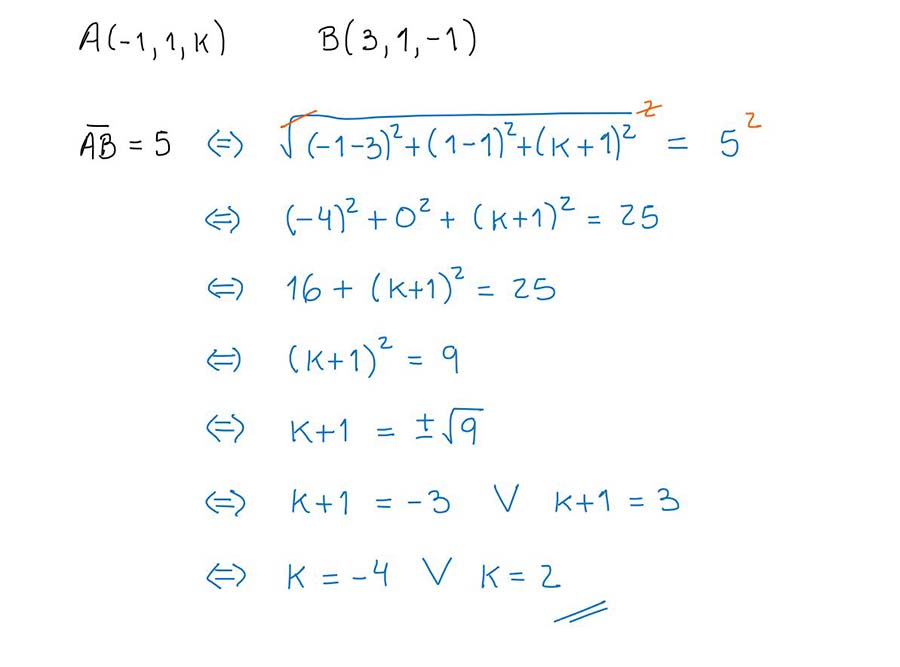 A(-1, 1, K) B(3, 1, -1)
A̅B̅ = 5 ⇔ √((-1-3)²+(1-1)²+(K+1)²)² = 5²
⇔ (-4)² + 0² + (K+1)² = 25
⇔ 16 + (K+1)² = 25
⇔ (K+1)² = 9
⇔ K+1 = ±√9
⇔ K+1 = -3 ∨ K+1 = 3
⇔ K = -4 ∨ K = 2